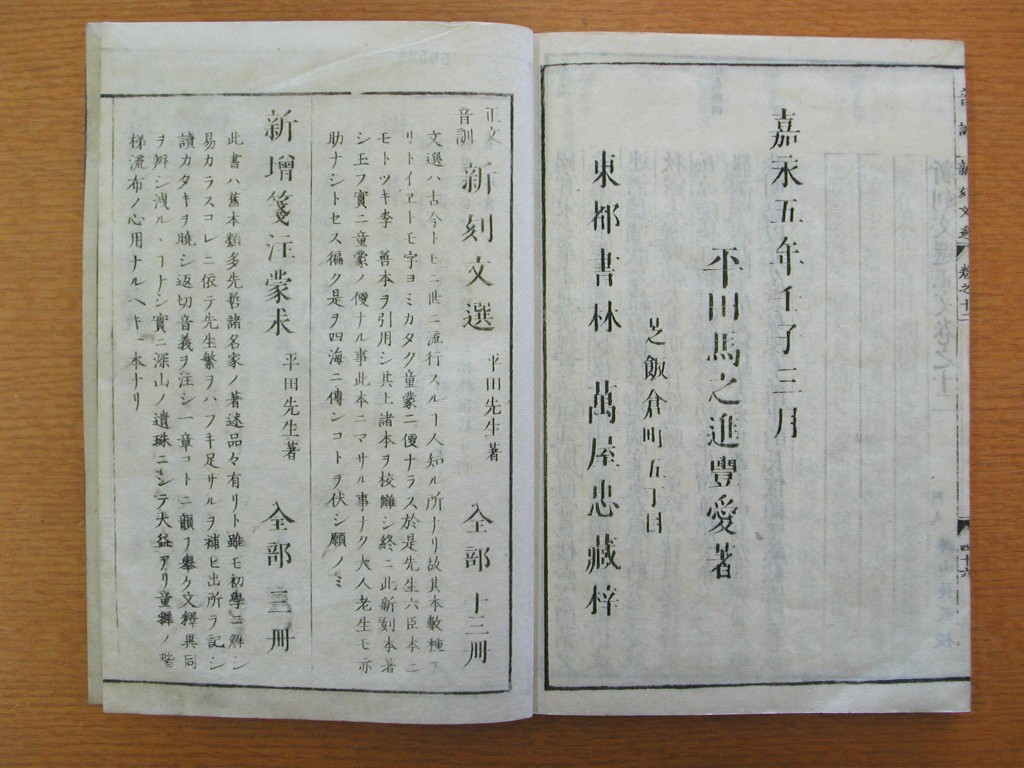 嘉永五年壬子三月
平田馬之進豐愛著
芝飯倉町五丁目
東都書林 萬屋忠藏梓
音訓 新刻文選 卷之十二
四十六
正文音訓 新刻文選 平田先生著 全部 十三冊
文選ハ古今トモニ世ニ流行スルヿ人知ル所ナリ故其本數種
リトイヱトモ字ヨミカタク童蒙ニ便ナラス於是先生六臣本ニ
モトツキ李 善本ヲ引用シ其上諸本ヲ校讎シ終ニ此新刻本著
シ玉フ實ニ童蒙ノ便ナル事此本ニマサル事ナク大人老生モ亦
助ナシトセス徧ク是ヲ四海ニ傳ンコトヲ伏シ願ノミ
新增箋注蒙求 平田先生著 全部 三冊
此書ハ舊本類多先哲諸名家ノ著述品々有リト雖モ初學ニ解シ
易カラスコレニ依テ先生繁ヲハフキ足サルヲ補ヒ出所ヲ記シ
讀カタキヲ曉シ返切音義ヲ注シ一章コトニ韻ヲ擧ク文釋異同
ヲ辨シ洩ルヽヿナシ實ニ深山ノ遺珠ニシテ大益アリ童輩ノ階
梯流布ノ心用ナルヘキ一本ナリ